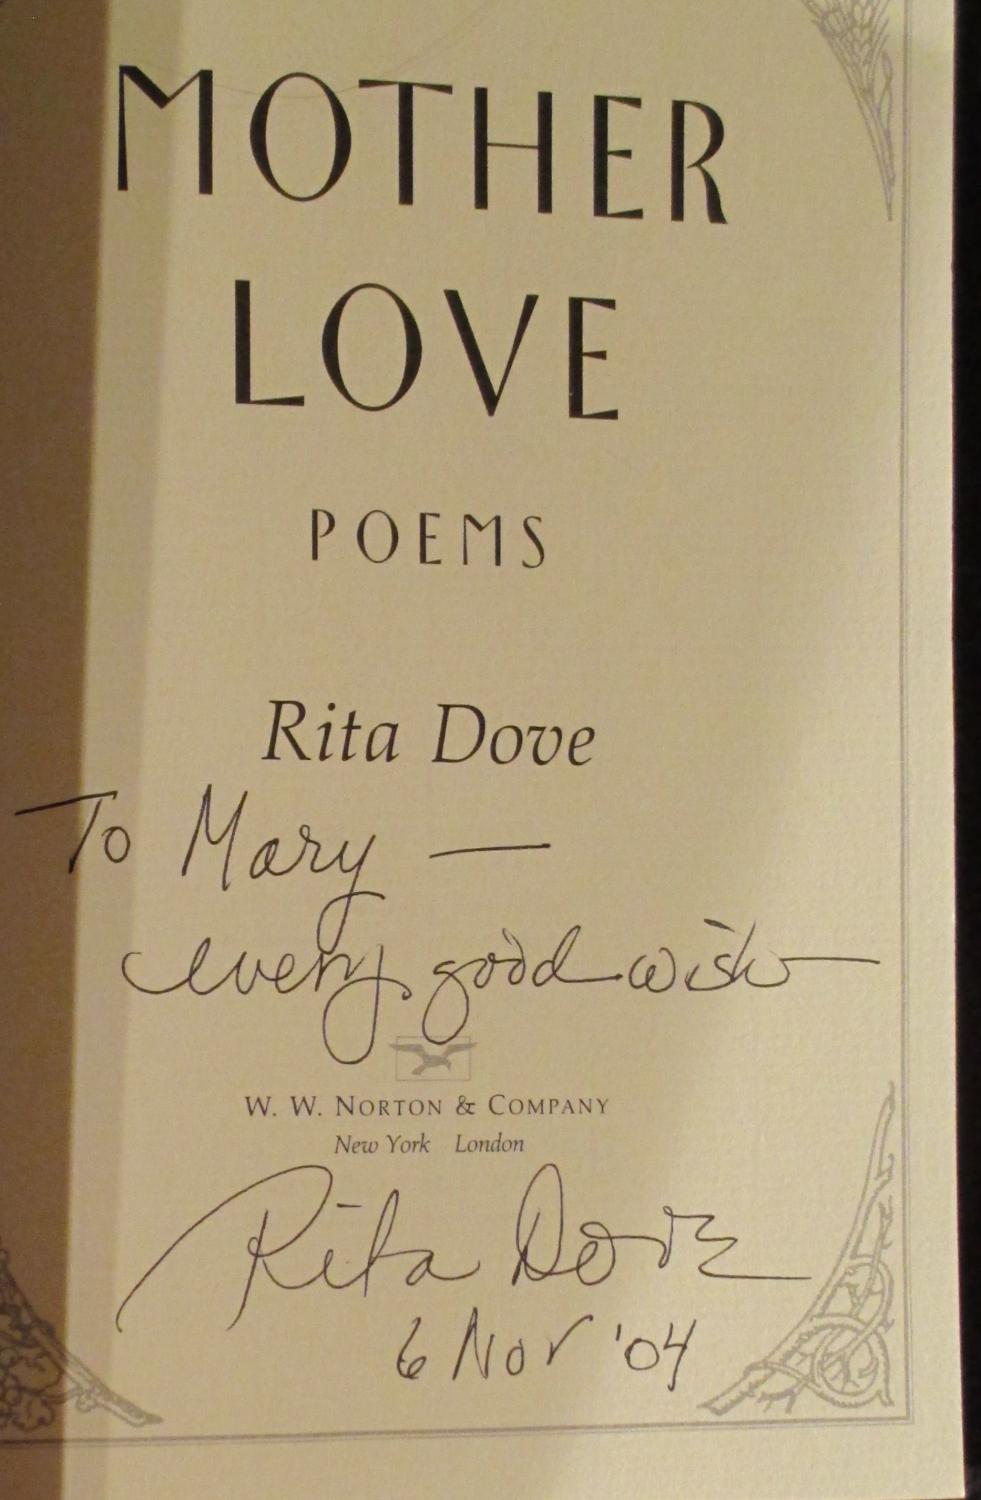 MOTHER
LOVE
POEMS
Rita Dove
To Mary —
every good wish
W. W. NORTON & COMPANY
New York London
Rita Dove
6 Nov '04